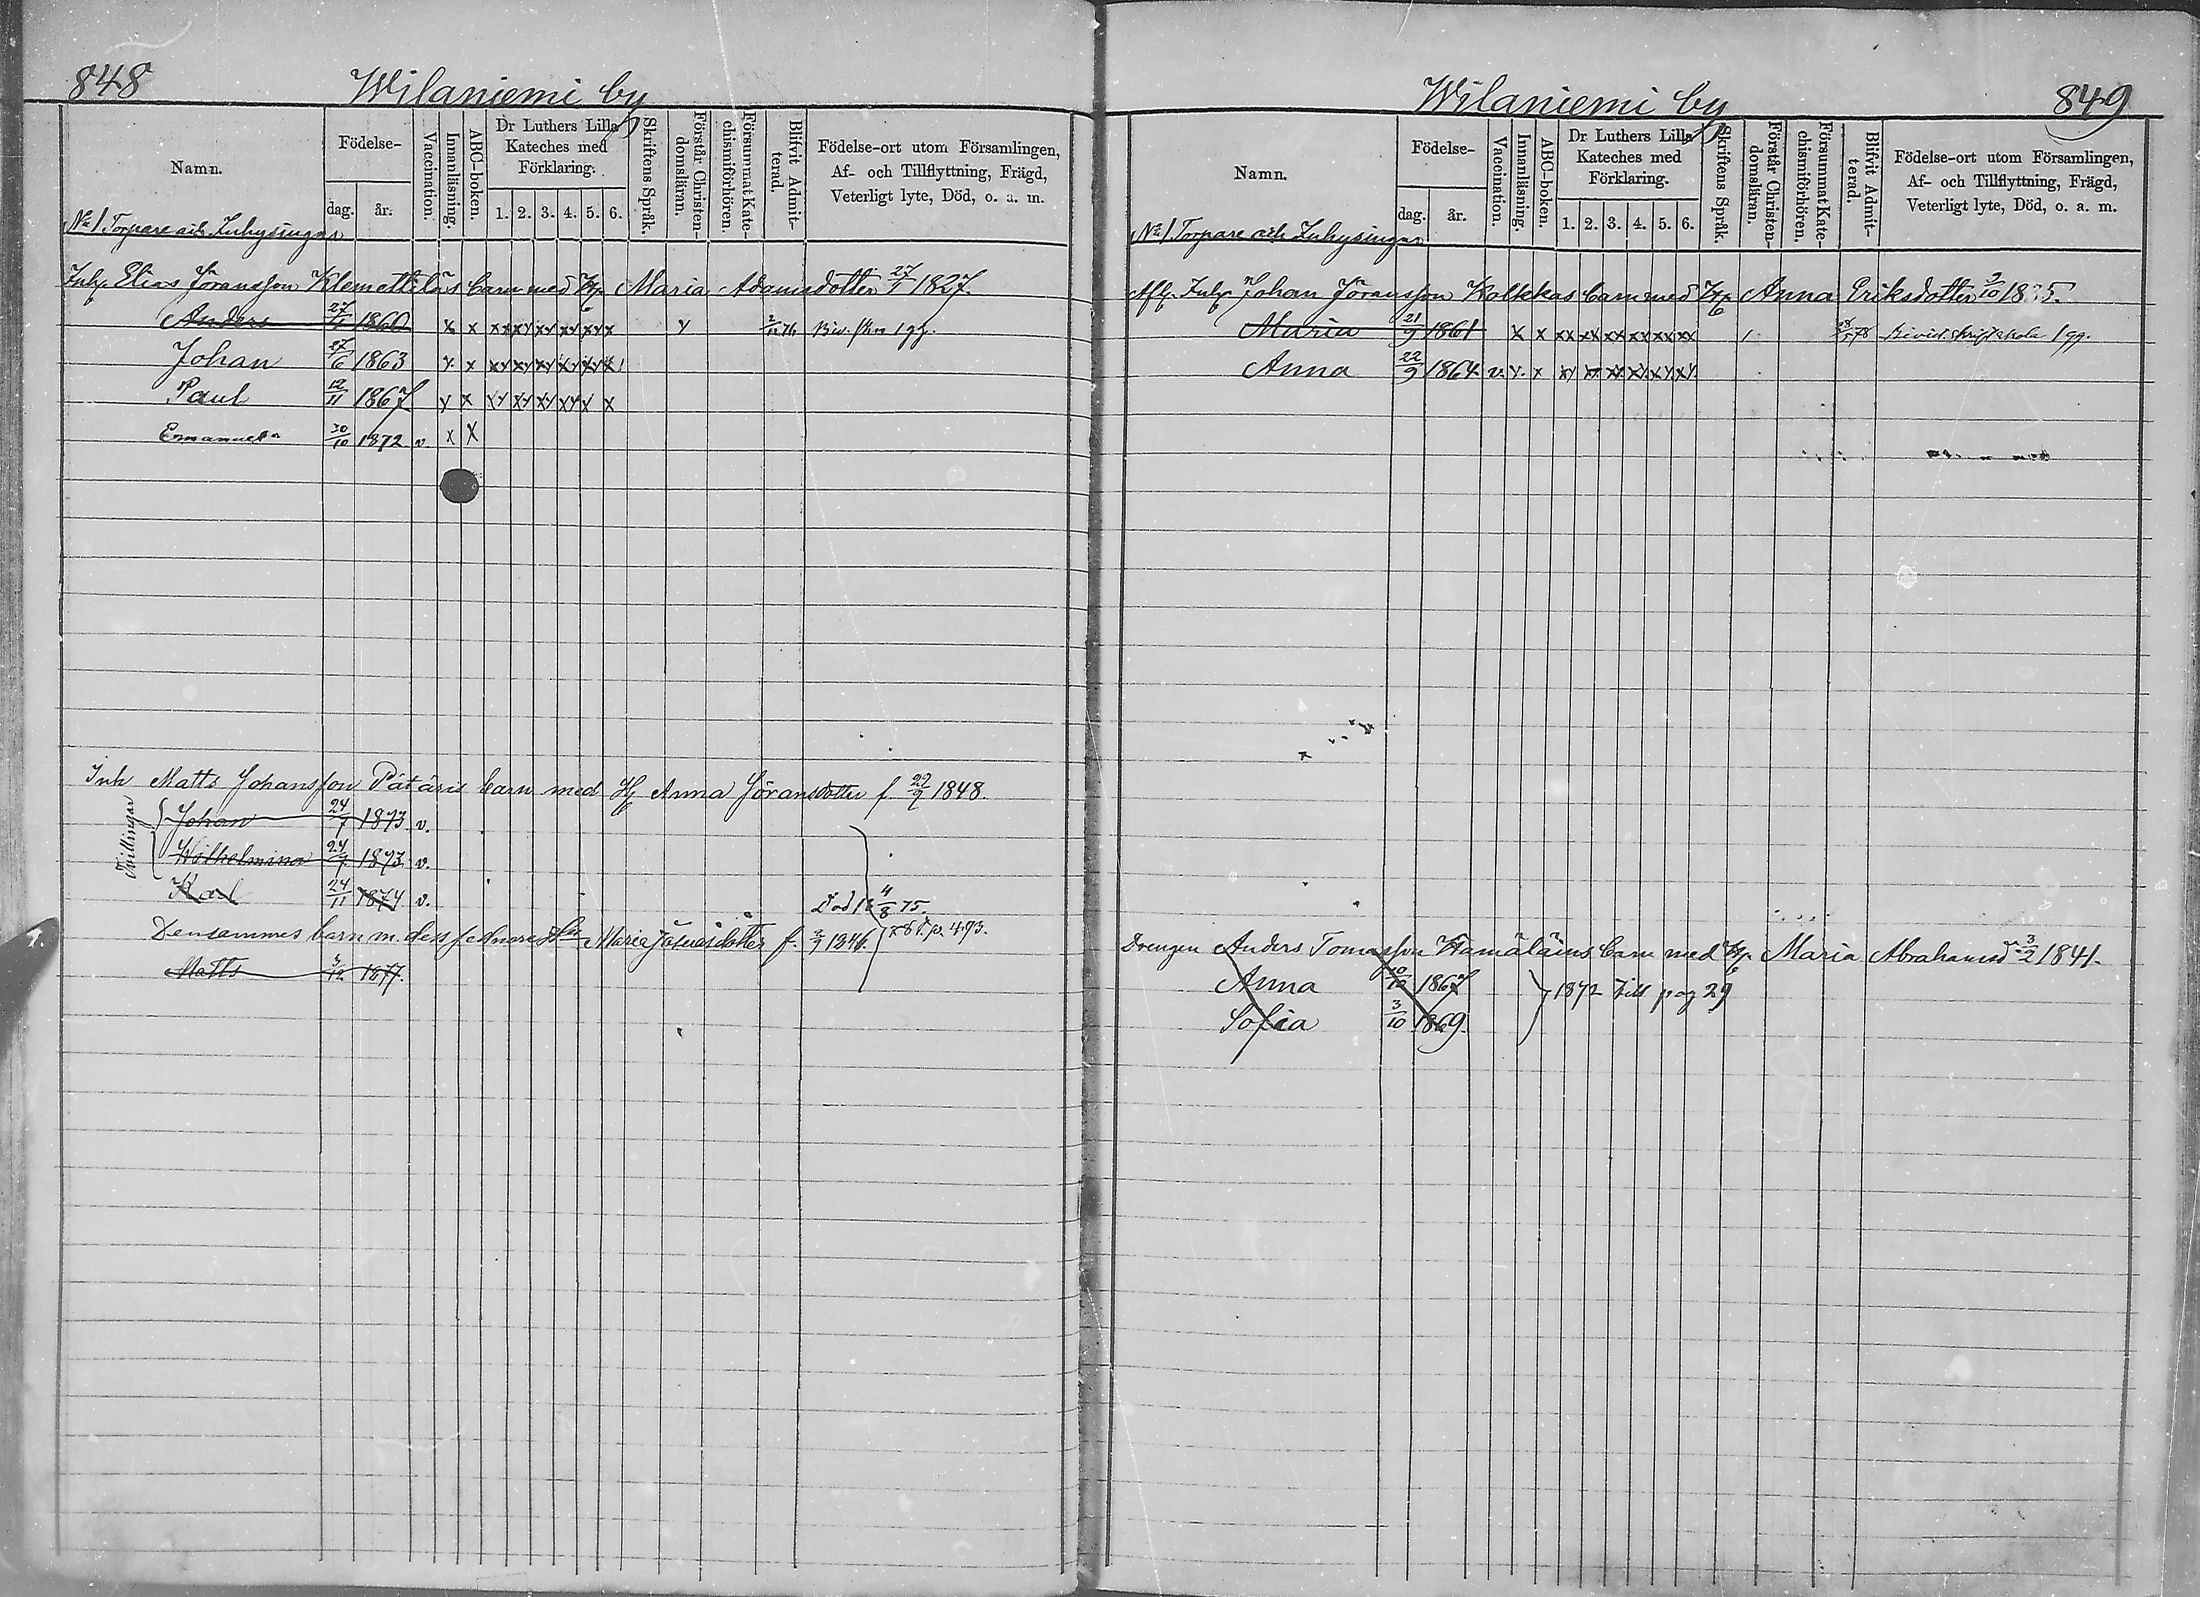 848
Wilaniemi by
Namn.
Födelse-
dag.
år.
Vaccination.
Innanläsning.
ABC-boken.
Dr Luthers Lilla
Kateches med
Förklaring.
1. 2. 3. 4. 5. 6.
Skriftens Språk.
Förstår Christen-
domsläran.
Försummat Kate-
chismiförhören.
Blifvit Admit-
terad.
Födelse-ort utom Församlingen,
Af- och Tillflyttning, Frägd,
Veterligt lyte, Död, o. a. m.
No 1 Torpare och Inhysingar
Inh. Elias Jöransson Klemettiläs barn med H. Maria Adamsdotter 27/1 1827.
Anders 1860 x x xx xy xy xy xy x y
Johan 27/6 1863 y. x xy xy xy xy xy x
Paul 12/11 1867 y x xy xy xy xy y x
Emanuel 30/10 1872 v. x X
Inh Matts Johansson Pätäris barn med H. Anna Jöransdotter f 29/9 1848.
Tvillingar
Johan 24/7 1873 v.
Wilhelmina 24/7 1873 v.
Karl 24/11 1874 v. Död 4/8 75.
Densammes barn m. dess sednare Maria dotter f.
p. 493.
Matts 3/12 1877.
Wilaniemi by
849
Namn.
Födelse-
dag.
år.
Vaccination.
Innanläsning.
ABC-boken.
Dr Luthers Lilla
Kateches med
Förklaring.
1. 2. 3. 4. 5. 6.
Skriftens Språk.
Förstår Christen-
domsläran.
Försummat Kate-
chismiförhören.
Blifvit Admit-
terad.
Födelse-ort utom Församlingen,
Af- och Tillflyttning, Frägd,
Veterligt lyte, Död, o. a. m.
No 1 Torpare och Inhysingar
Afl. Inh. Johan Jöransson Kolkkas barn med H. Anna Eriksdotter
Maria 21/9 1861 x x xx xx xx xx xx xx Bivist. skriftskola 1 gg.
Anna 22/9 1864 v. y. x xy xx xx xy xy xy
Drengen Anders Tomasson Hämäläins barn med H. Maria Abrahamsd 3/2 1841.
Anna 10/10 1867
1872 till pag 29
Sofia 3/10 1869.